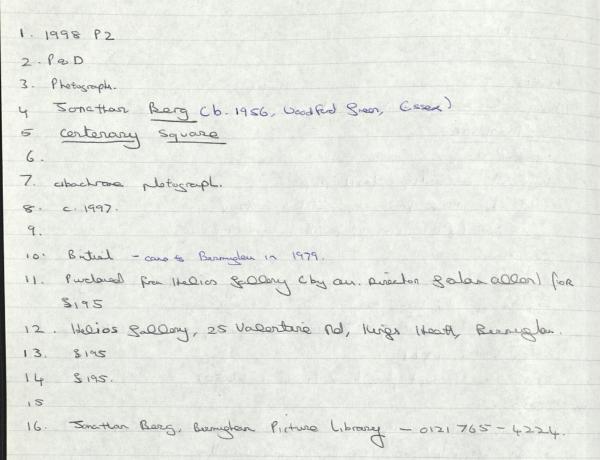 1. 1998 P2
2. P&D
3. Photograph.
4 Jonathan Berg (b. 1956, Woodford Green, Essex)
5 Centenary Square
6.
7. cibachrome photograph.
8. c. 1997.
9.
10. British - came to Birmingham in 1979.
11. Purchased from Helios Gallery (by au. Director Graham Allen) for
£195
12. Helios Gallery, 25 Valentine Rd, Kings Heath, Birmingham.
13. £195
14 £195.
15
16. Jonathan Berg, Birmingham Picture Library - 0121 765 - 4224.